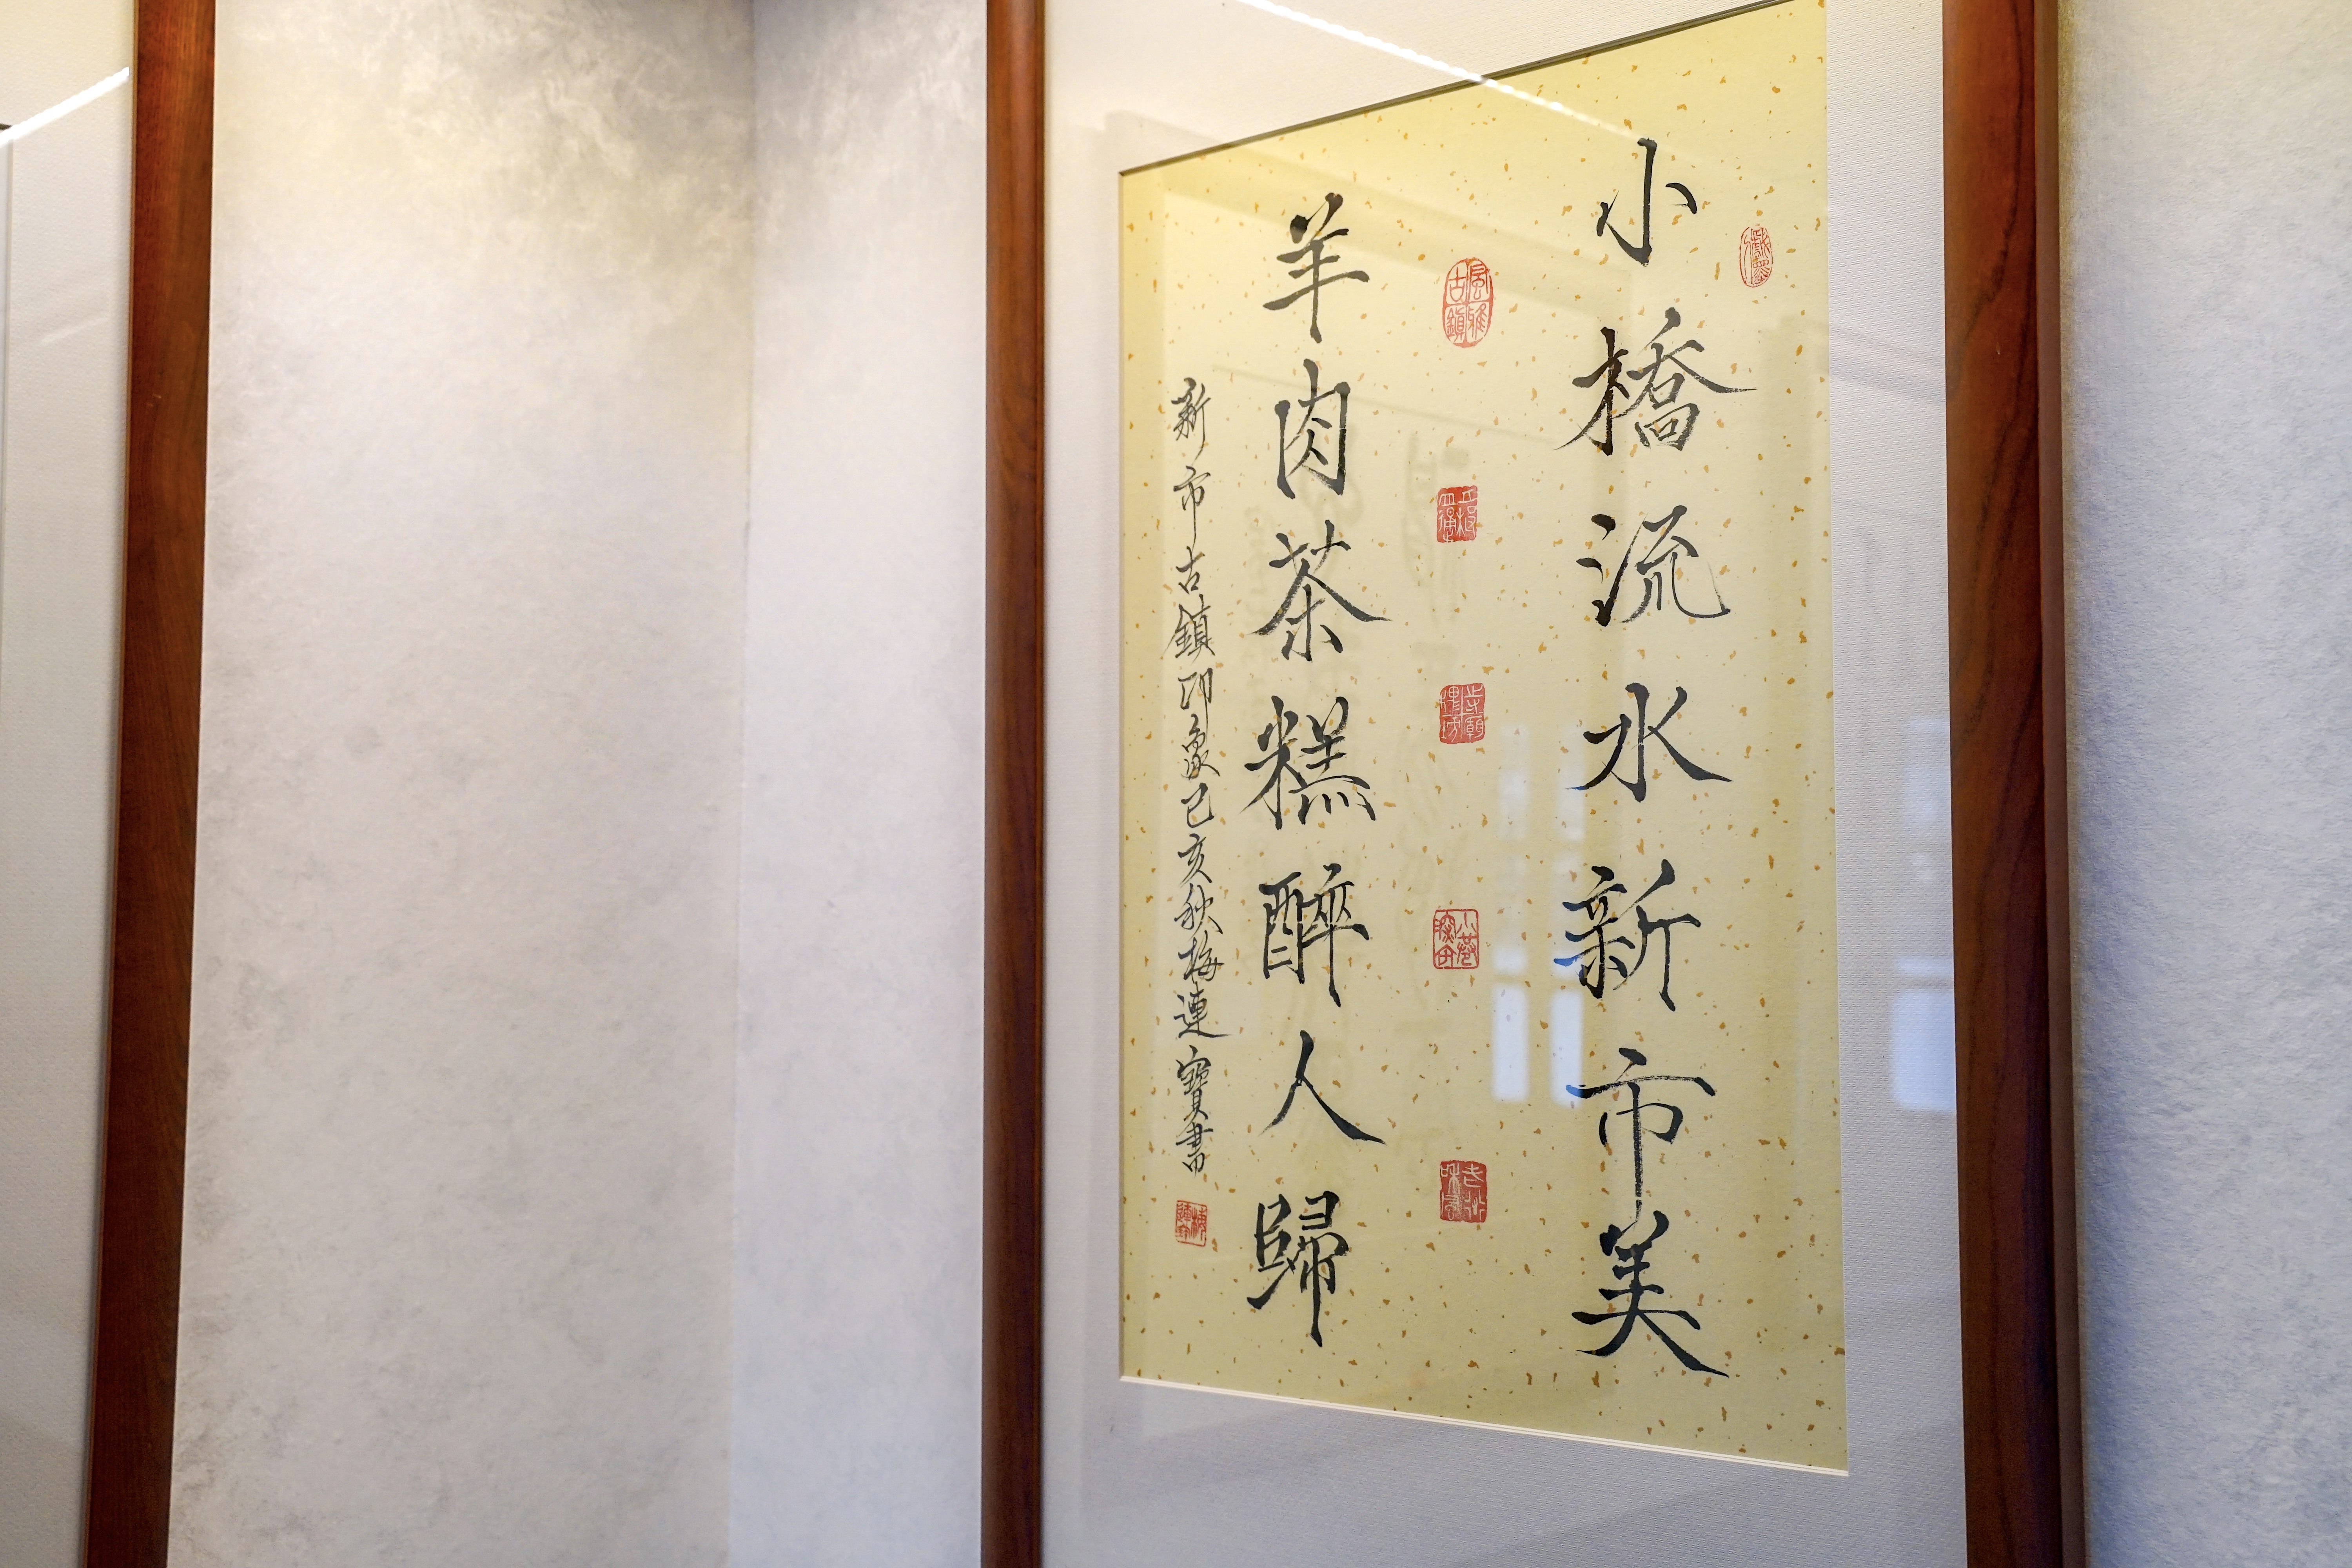 小橋流水新市美
風雅古鎮
羊肉茶糕醉人歸
新市古鎮印象己亥秋梅連寶書